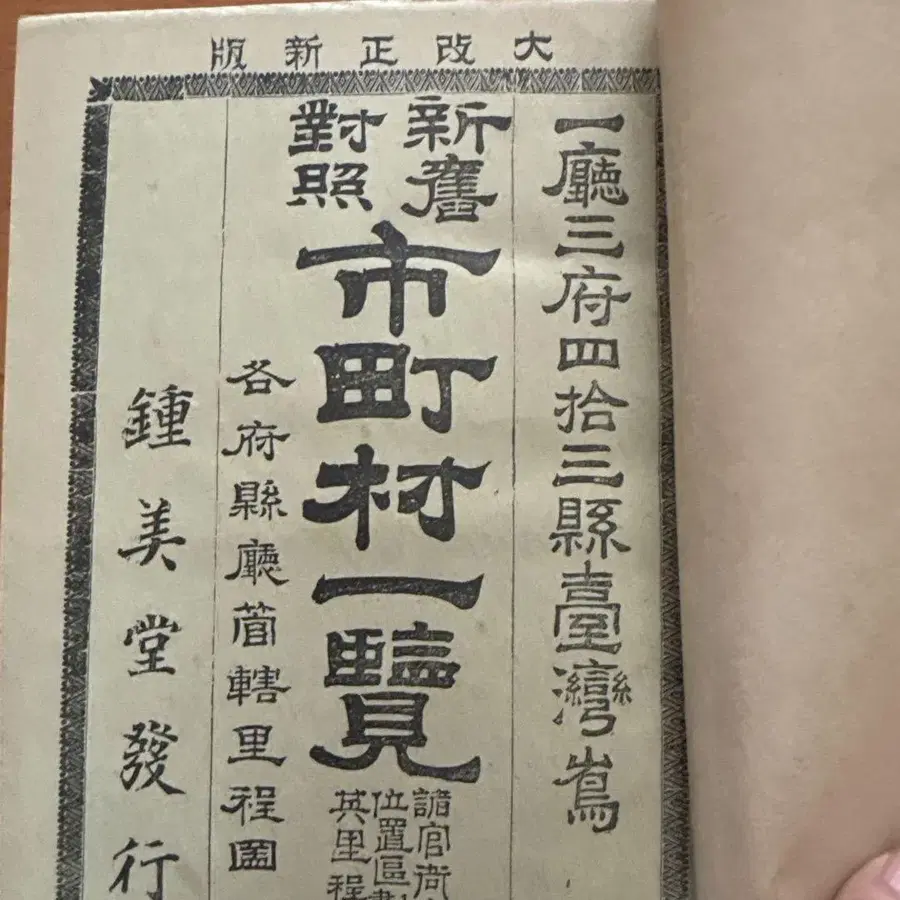 大改正新版
一廳三府四拾三縣臺灣嶌
新舊
對照
市町村一覽
諸官衙
位置區劃
英里程
各府縣廳管轄里程圖
鍾美堂發行